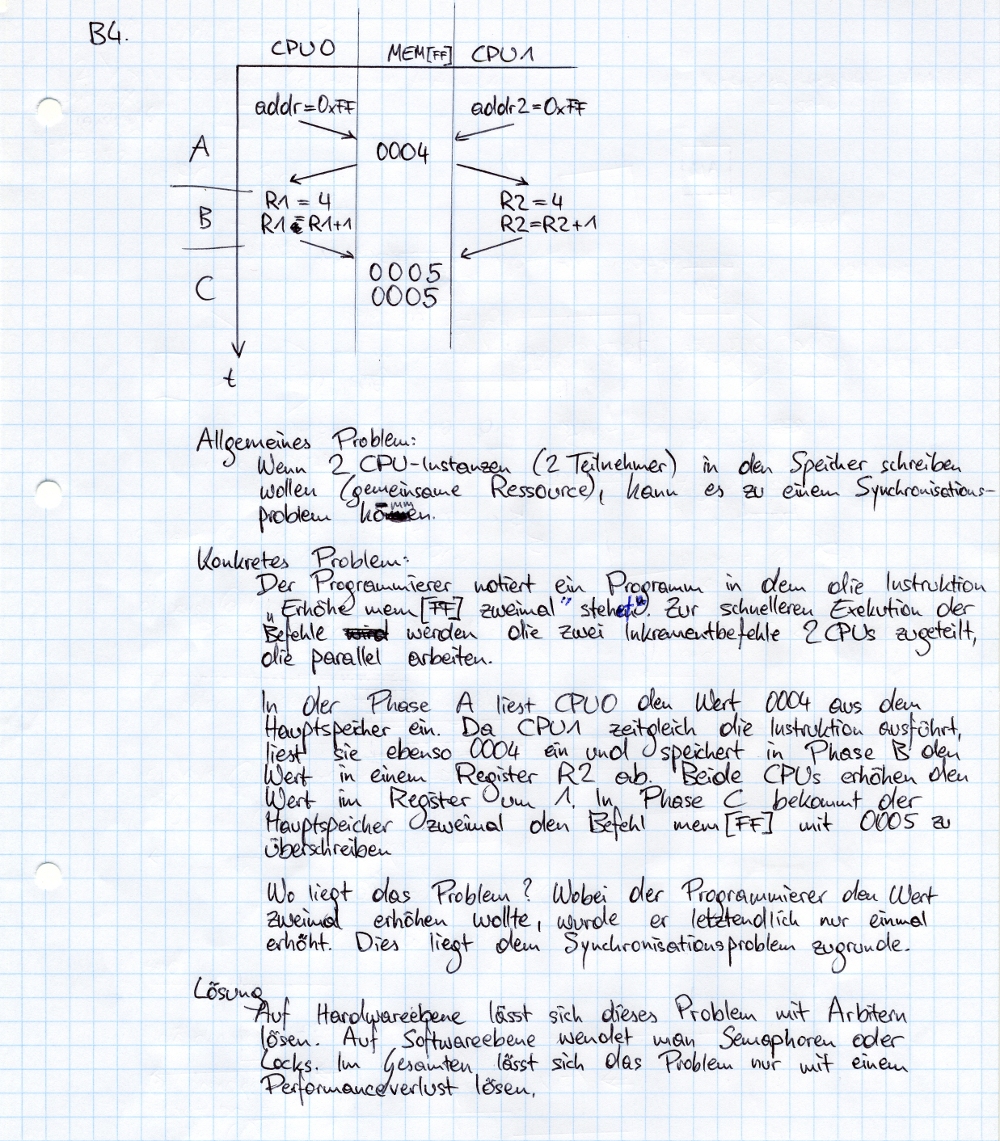 B4.
CPU0 MEM[FF] CPU1
addr=0xFF addr2=0xFF
A 0004
R1 = 4 R2=4
B R1=R1+1 R2=R2+1
0005
C 0005
t
Allgemeines Problem:
Wenn 2 CPU-Instanzen (2 Teilnehmer) in den Speicher schreiben
wollen (gemeinsame Ressource), kann es zu einem Synchronisations-
problem kommen.
Konkretes Problem:
Der Programmierer notiert ein Programm in dem die Instruktion
„Erhöhe mem[FF] zweimal" steht. Zur schnelleren Exekution der
Befehle werden die zwei Inkrementbefehle 2 CPUs zugeteilt,
die parallel arbeiten.
In der Phase A liest CPU0 den Wert 0004 aus dem
Hauptspeicher ein. Da CPU1 zeitgleich die Instruktion ausführt,
liest sie ebenso 0004 ein und speichert in Phase B den
Wert in einem Register R2 ab. Beide CPUs erhöhen den
Wert im Register um 1. In Phase C bekommt der
Hauptspeicher zweimal den Befehl mem[FF] mit 0005 zu
überschreiben
Wo liegt das Problem? Wobei der Programmierer den Wert
zweimal erhöhen wollte, wurde er letztendlich nur einmal
erhöht. Dies liegt dem Synchronisationsproblem zugrunde.
Lösung
Auf Hardwareebene lässt sich dieses Problem mit Arbitern
lösen. Auf Softwareebene wendet man Semaphoren oder
Locks. Im Gesamten lässt sich das Problem nur mit einem
Performanceverlust lösen.